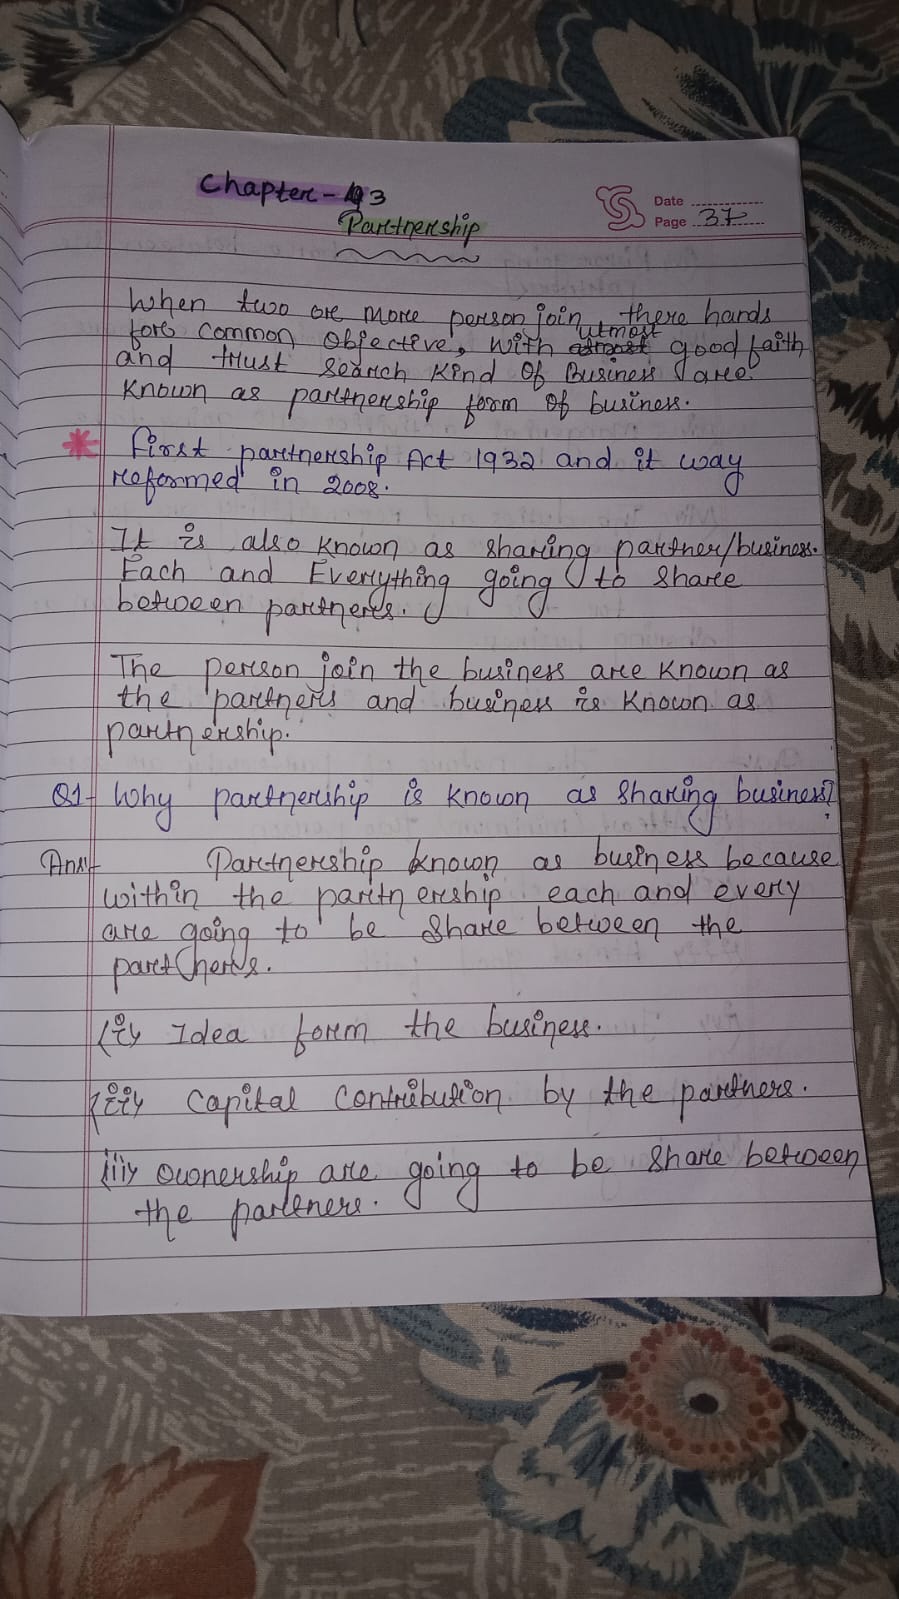 Chapter - 3
Partnership
Date
Page 37
When two or more person join there hands
for common objective, with utmost good faith
and trust search kind of Business are
known as partnership form of business.
* first partnership Act 1932 and it way
reformed in 2008.
It is also known as sharing partner/business.
Each and Everything going to share
between partners.
The person join the business are known as
the partners and business is known as
partnership.
Q1 Why partnership is known as sharing business?
Ans Partnership known as business because
within the partnership each and every
are going to be share between the
partners.
(i) Idea form the business.
(ii) Capital contribution by the partners.
(iii) ownership are going to be share between
the partners.